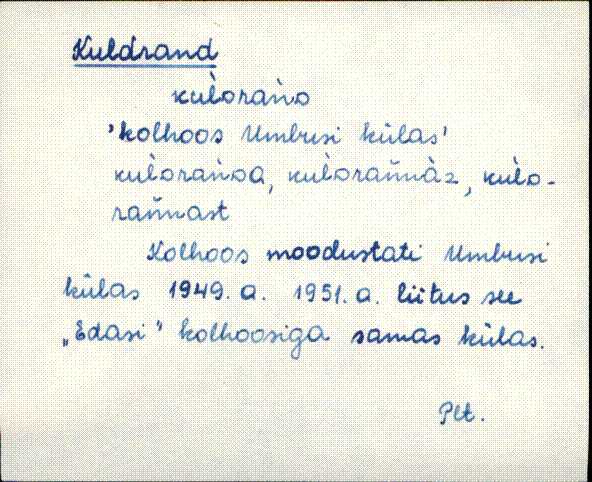 Kuldrand
kul̀orańo
'kolhoos Umbusi külas'
kul̀orańoa, kul̀orańnàz, kul̀o-
rańnast
Kolhoos moodustati Umbusi
külas 1949. a. 1951. a. liitus see
„Edasi" kolhoosiga samas külas.
Plt.